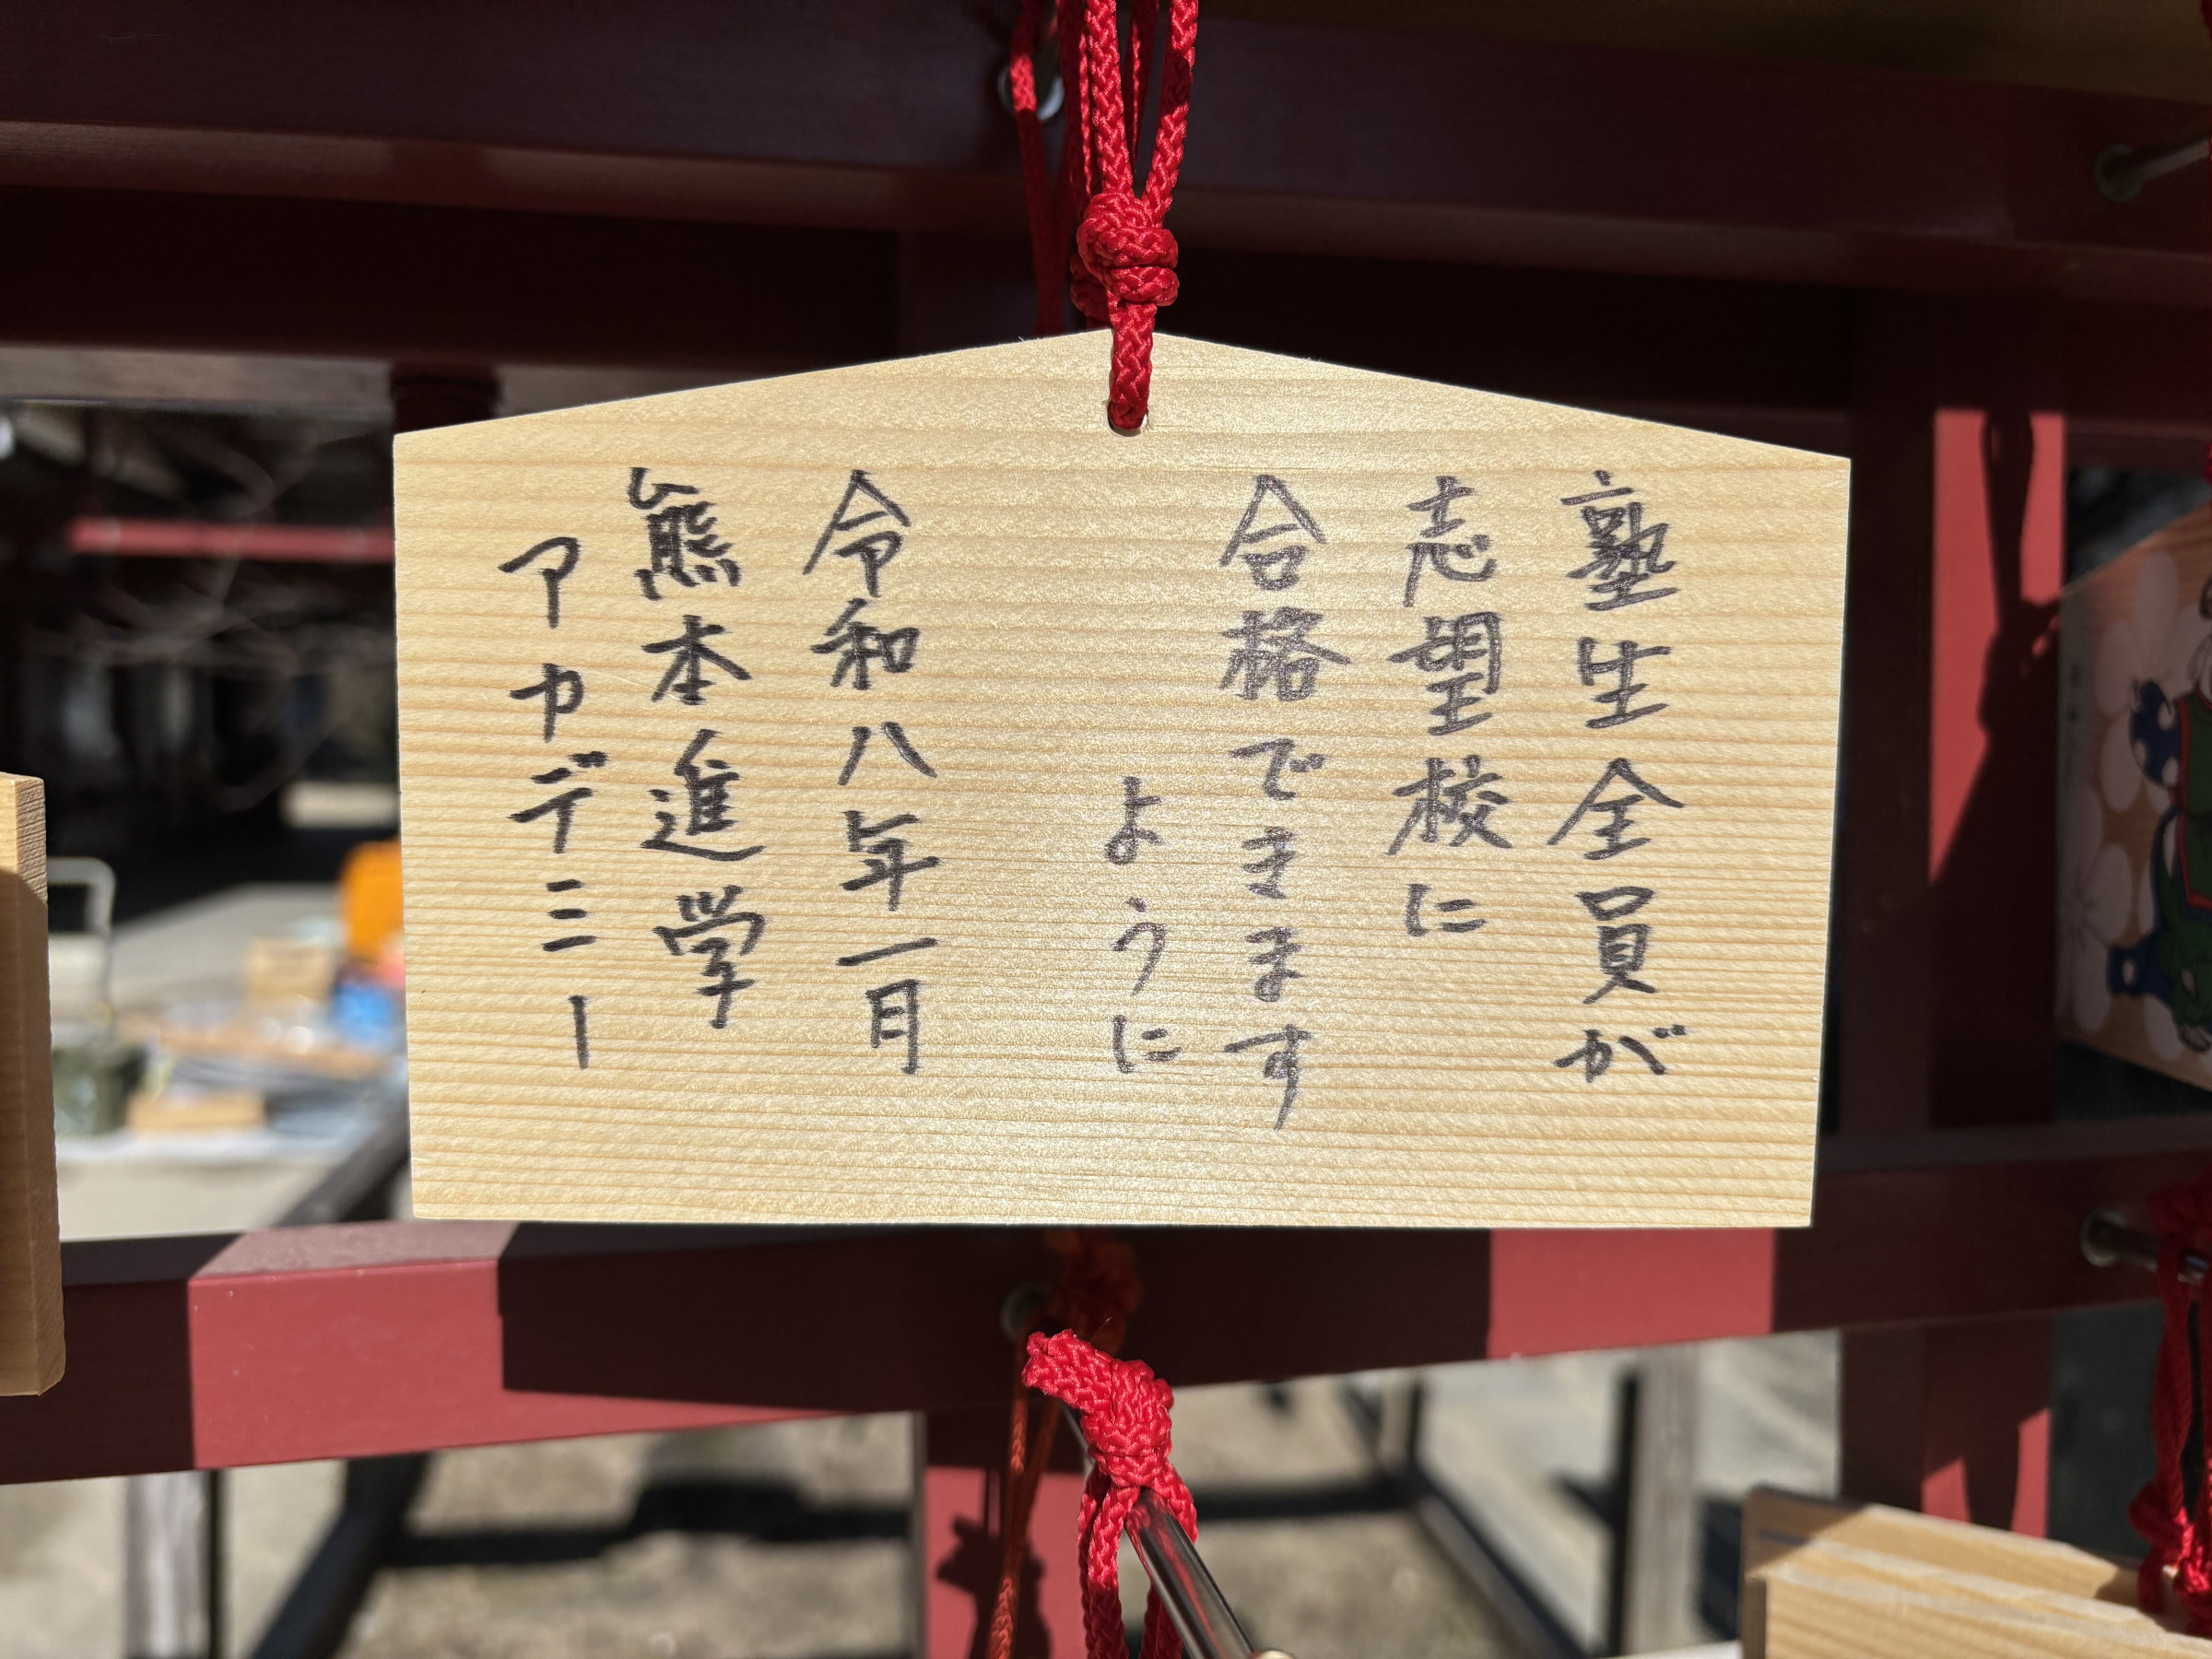 塾生全員が
志望校に
合格できますす
ように
令和八年一月
熊本進学
アカデミー